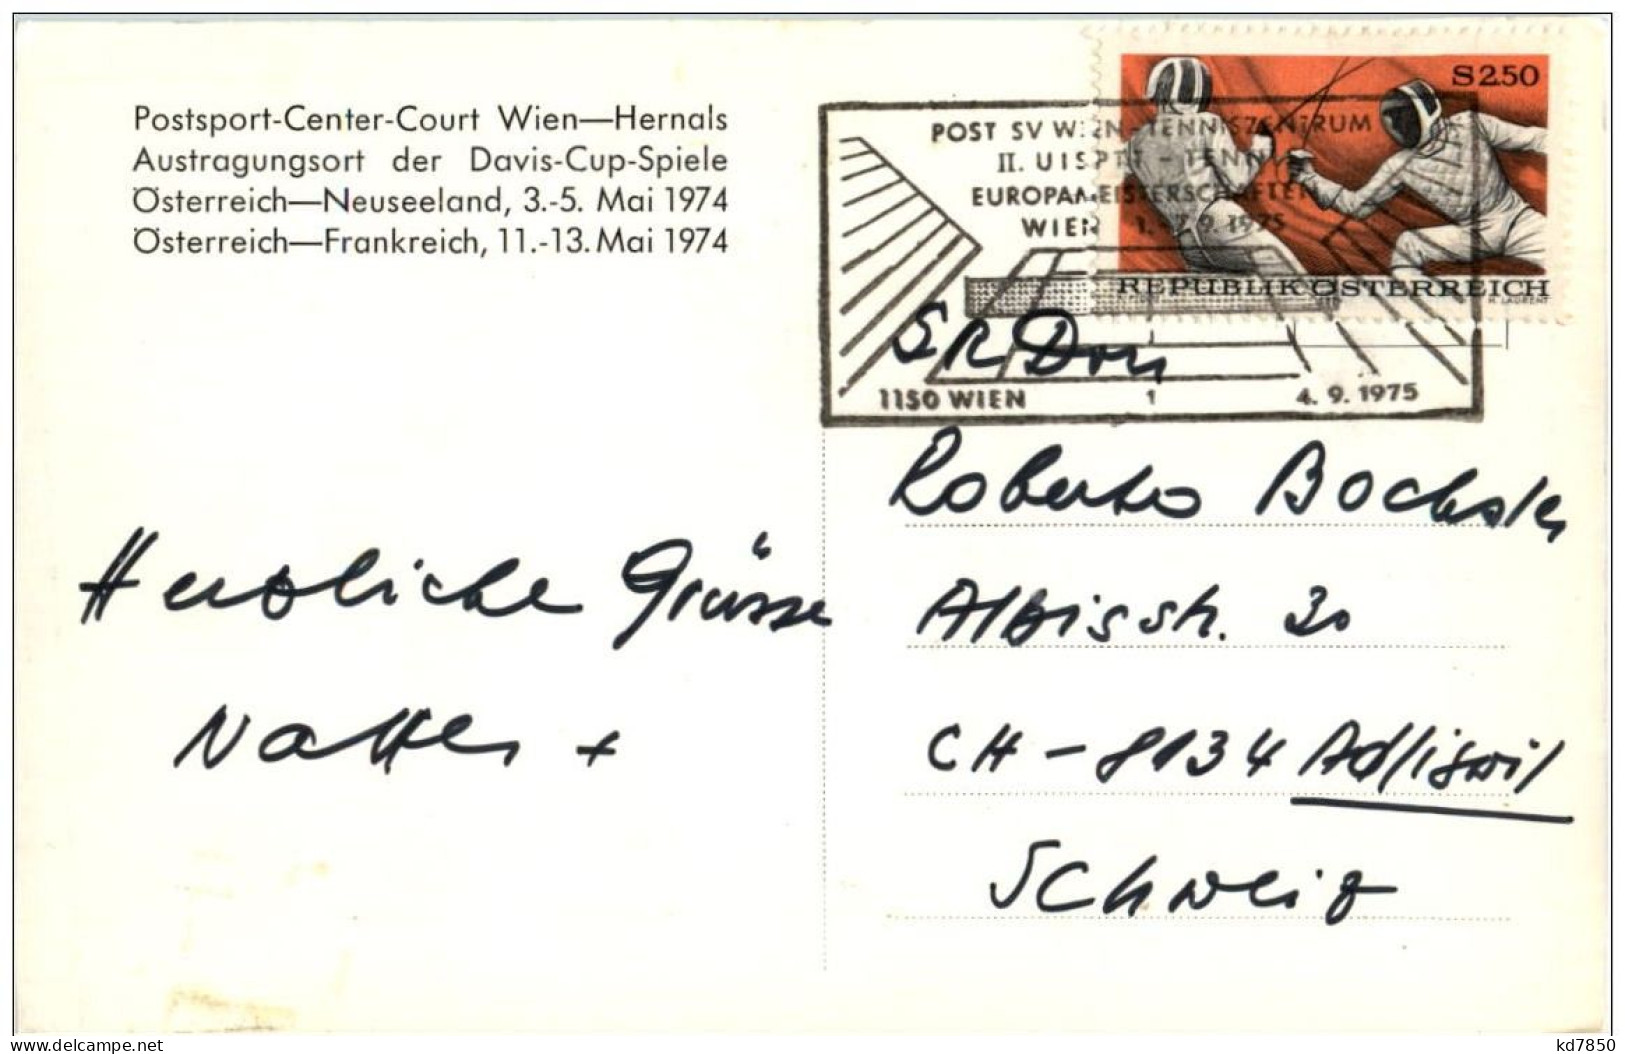 Postsport-Center-Court Wien—Hernals
Austragungsort der Davis-Cup-Spiele
Österreich—Neuseeland, 3.-5. Mai 1974
Österreich—Frankreich, 11.-13. Mai 1974
S2.50
POST SV WIEN-TENNISZENTRUM
II. UISPTT - TENNIS
EUROPAMEISTERSCHAFTEN
WIEN 1.-7.9.1975
REPUBLIK ÖSTERREICH
H. LAURENT
1150 WIEN 1 4.9.1975
Roberto
Albisstr. 30
CH-8134 Adliswil
Schweiz
Herzliche Grüsse
kd7850